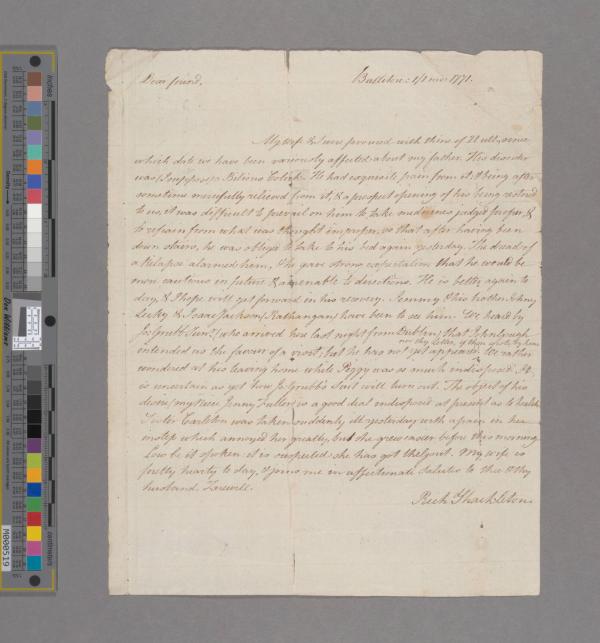 Dear friend,
Ballitore: 1/1 mo: 1771.
My wife & I were favoured with thine of 22 ult, since
which date we have been variously affected about my father. His disorder
was I suppose a Bilious Colick. He had exquisite pain from it: & being after
sometime mercifully relieved from it, & a prospect opening of his being restored
to us, it was difficult to prevail on him to take medicines judg'd proper, &
to refrain from what was thought improper, so that after having been
down stairs, he was oblig'd to take to his bed again yesterday. The dread of
a Relapse alarmed him, & he gave strong expectation that he would be
more cautious in future & amenable to directions. He is better again to
day, & I hope will get forward in his recovery. Jemmy & his brother Johny
Lecky & Isaac Jackson (Rathangan) have been to see him. We heard by
Jos: Grubb Junr. (who arrived here last night from Dublin) that John
nor thy letter, if thou wrote by him
intended us the favour of a visit, but he has not yet appear'd. We rather
wondered at his leaving home while Peggy was so much indisposed. It
is uncertain as yet how Js. Grubb's Suit will turn out. The object of his
desire, my niece Jenny Fuller, is a good deal indisposed at present as to health.
Sister Carleton was taken suddenly ill yesterday with a pain in her
instep which annoyed her greatly, but she grew easier before this morning.
Low be it spoken: it is suspected she has got the Gout. My wife is
pretty hearty to day, & joins me in affectionate salutes to thee & thy
husband. Farewell.
Rich Shackleton.
inches
centimetres
Don Williams
M000519